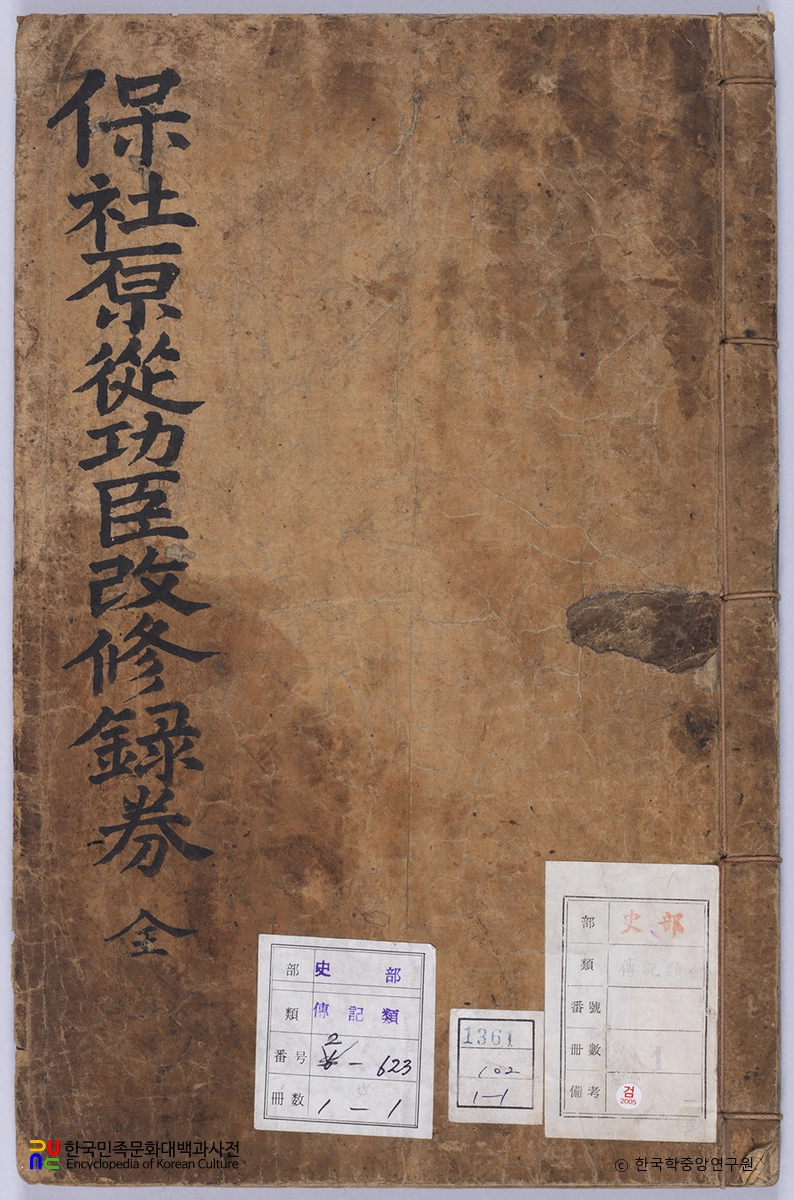 保社原從功臣改修錄券 全
部 史 部
類 傳記類
番号 2 - 623
冊数 1 - 1
1361
102
1-1
部 史部
類 傳記類
番號
冊數 1
備考 검 2005
한국민족문화대백과사전
Encyclopedia of Korean Culture
© 한국학중앙연구원